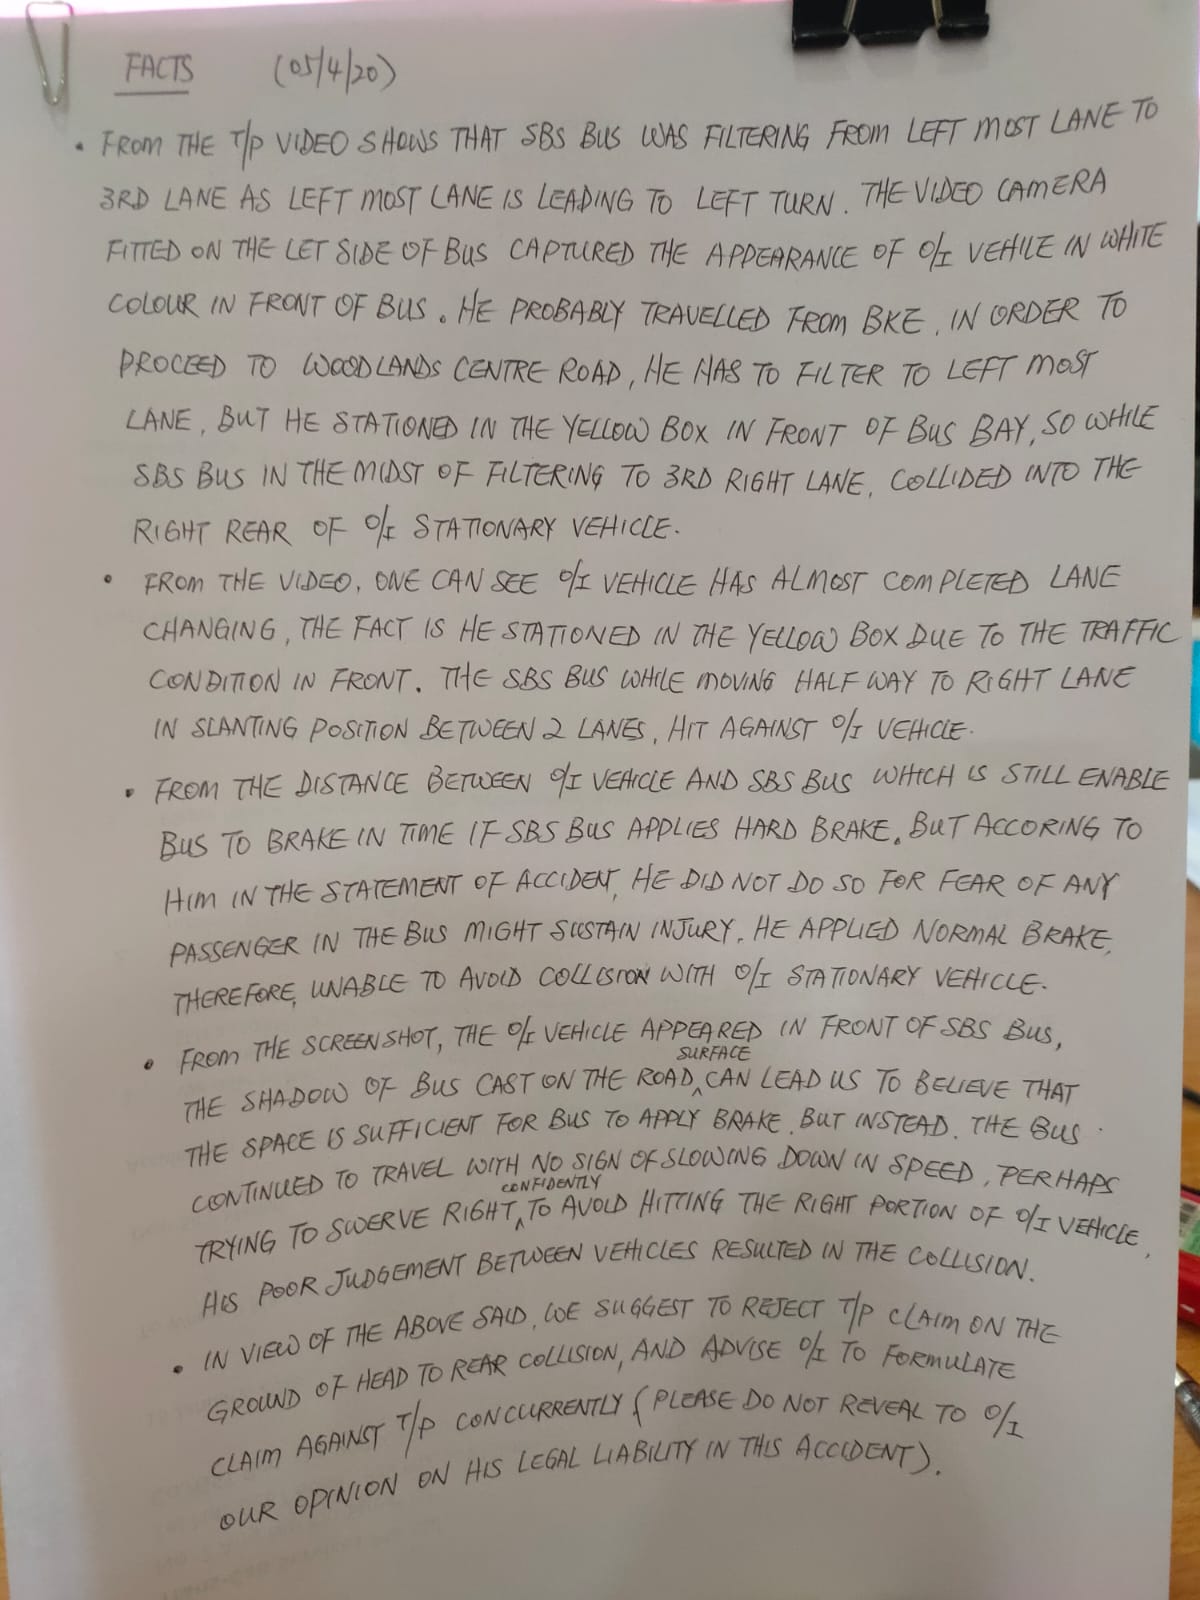 FACTS (05/4/20)
• FROM THE T/P VIDEO SHOWS THAT SBS BUS WAS FILTERING FROM LEFT MOST LANE TO
3RD LANE AS LEFT MOST LANE IS LEADING TO LEFT TURN. THE VIDEO CAMERA
FITTED ON THE LET SIDE OF BUS CAPTURED THE APPEARANCE OF O/I VEHILE IN WHITE
COLOUR IN FRONT OF BUS. HE PROBABLY TRAVELLED FROM BKE, IN ORDER TO
PROCEED TO WOODLANDS CENTRE ROAD, HE HAS TO FILTER TO LEFT MOST
LANE, BUT HE STATIONED IN THE YELLOW BOX IN FRONT OF BUS BAY, SO WHILE
SBS BUS IN THE MIDST OF FILTERING TO 3RD RIGHT LANE, COLLIDED INTO THE
RIGHT REAR OF O/I STATIONARY VEHICLE.
• FROM THE VIDEO, ONE CAN SEE O/I VEHICLE HAS ALMOST COMPLETED LANE
CHANGING, THE FACT IS HE STATIONED IN THE YELLOW BOX DUE TO THE TRAFFIC
CONDITION IN FRONT. THE SBS BUS WHILE MOVING HALF WAY TO RIGHT LANE
IN SLANTING POSITION BETWEEN 2 LANES, HIT AGAINST O/I VEHICLE.
• FROM THE DISTANCE BETWEEN O/I VEHICLE AND SBS BUS WHICH IS STILL ENABLE
BUS TO BRAKE IN TIME IF SBS BUS APPLIES HARD BRAKE. BUT ACCORING TO
HIM IN THE STATEMENT OF ACCIDENT, HE DID NOT DO SO FOR FEAR OF ANY
PASSENGER IN THE BUS MIGHT SUSTAIN INJURY. HE APPLIED NORMAL BRAKE,
THEREFORE, UNABLE TO AVOID COLLISION WITH O/I STATIONARY VEHICLE.
• FROM THE SCREENSHOT, THE O/I VEHICLE APPEARED IN FRONT OF SBS BUS,
SURFACE
THE SHADOW OF BUS CAST ON THE ROAD ^ CAN LEAD US TO BELIEVE THAT
THE SPACE IS SUFFICIENT FOR BUS TO APPLY BRAKE. BUT INSTEAD. THE BUS
CONTINUED TO TRAVEL WITH NO SIGN OF SLOWING DOWN IN SPEED, PERHAPS
CONFIDENTLY
TRYING TO SWERVE RIGHT ^ TO AVOID HITTING THE RIGHT PORTION OF O/I VEHICLE,
HIS POOR JUDGEMENT BETWEEN VEHICLES RESULTED IN THE COLLISION.
• IN VIEW OF THE ABOVE SAID, WE SUGGEST TO REJECT T/P CLAIM ON THE
GROUND OF HEAD TO REAR COLLISION, AND ADVISE O/I TO FORMULATE
CLAIM AGAINST T/P CONCURRENTLY (PLEASE DO NOT REVEAL TO O/I
OUR OPINION ON HIS LEGAL LIABILITY IN THIS ACCIDENT).